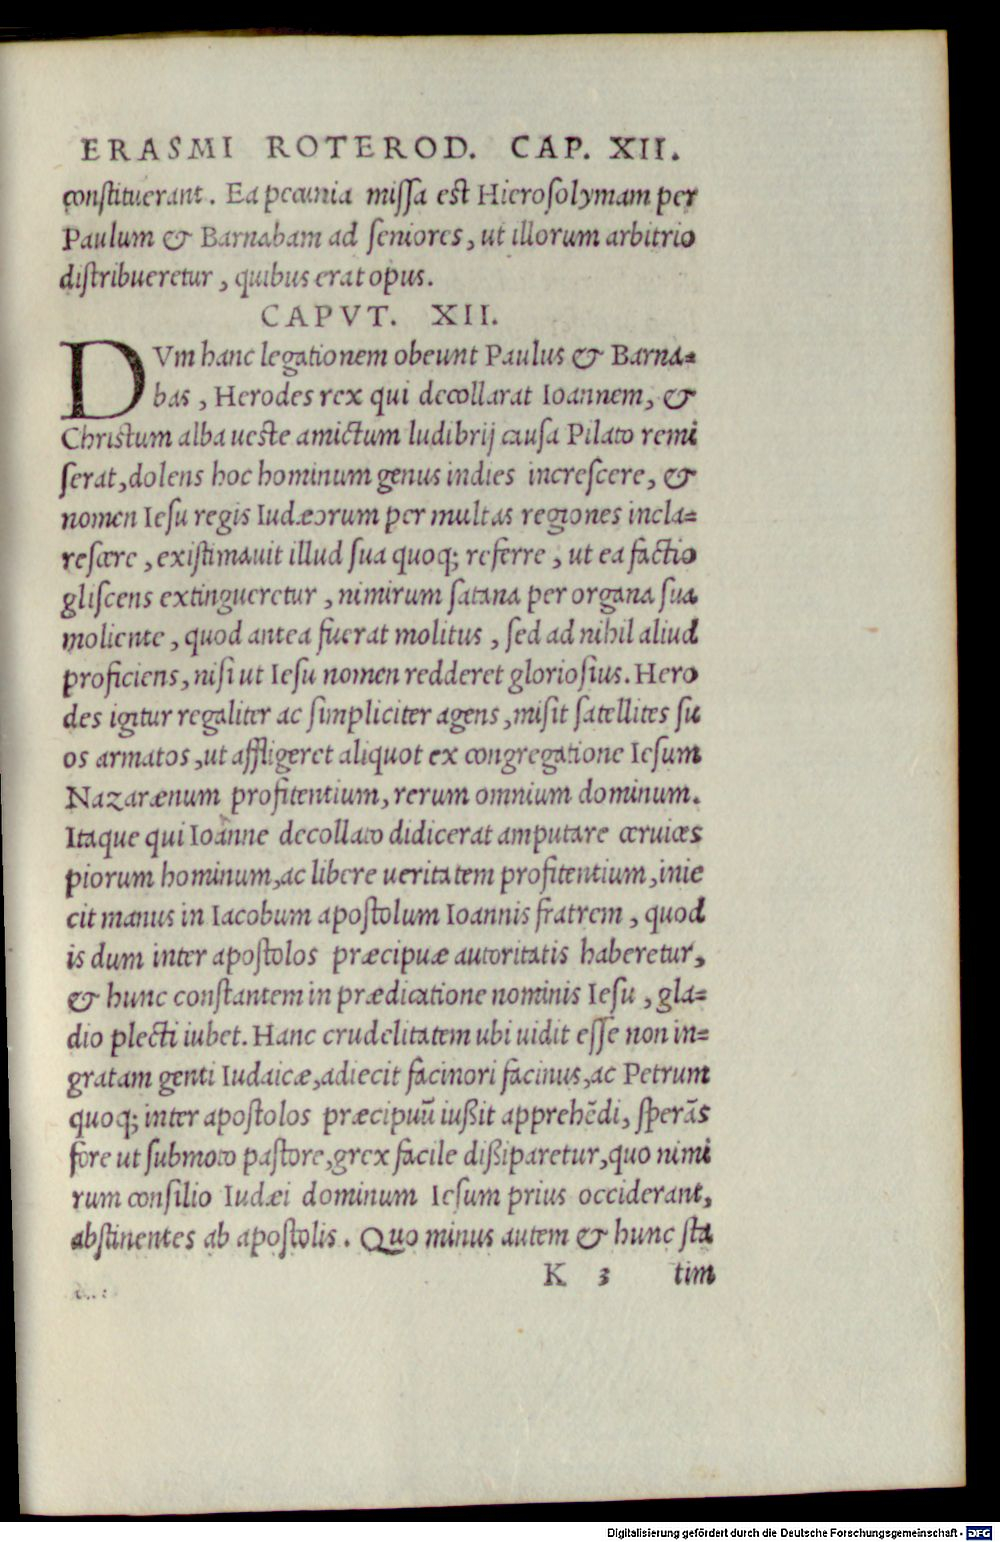 ERASMI ROTEROD. CAP. XII.
constituerant. Ea pecunia missa est Hierosolymam per
Paulum & Barnabam ad seniores, ut illorum arbitrio
distribueretur, quibus erat opus.
CAPVT. XII.
DVm hanc legationem obeunt Paulus & Barna=
bas, Herodes rex qui decollarat Ioannem, &
Christum alba ueste amictum ludibrij causa Pilato remi
serat, dolens hoc hominum genus indies increscere, &
nomen Iesu regis Iudæorum per multas regiones incla=
rescere, existimauit illud sua quoq; referre, ut ea factio
gliscens extingueretur, nimirum satana per organa sua
moliente, quod antea fuerat molitus, sed ad nihil aliud
proficiens, nisi ut Iesu nomen redderet gloriosius. Hero
des igitur regaliter ac simpliciter agens, misit satellites su
os armatos, ut affligeret aliquot ex congregatione Iesum
Nazarænum profitentium, rerum omnium dominum.
Itaque qui Ioanne decollato didicerat amputare ceruices
piorum hominum, ac libere ueritatem profitentium, inie
cit manus in Iacobum apostolum Ioannis fratrem, quod
is dum inter apostolos præcipuæ autoritatis haberetur,
& hunc constantem in prædicatione nominis Iesu, gla=
dio plecti iubet. Hanc crudelitatem ubi uidit esse non in=
gratam genti Iudaicæ, adiecit facinori facinus, ac Petrum
quoq; inter apostolos præcipuũ iußit apprehẽdi, sperãs
fore ut submoto pastore, grex facile dißiparetur, quo nimi
rum consilio Iudæi dominum Iesum prius occiderant,
abstinentes ab apostolis. Quo minus autem & hunc sta
K 3 tim
Digitalisierung gefördert durch die Deutsche Forschungsgemeinschaft - DFG